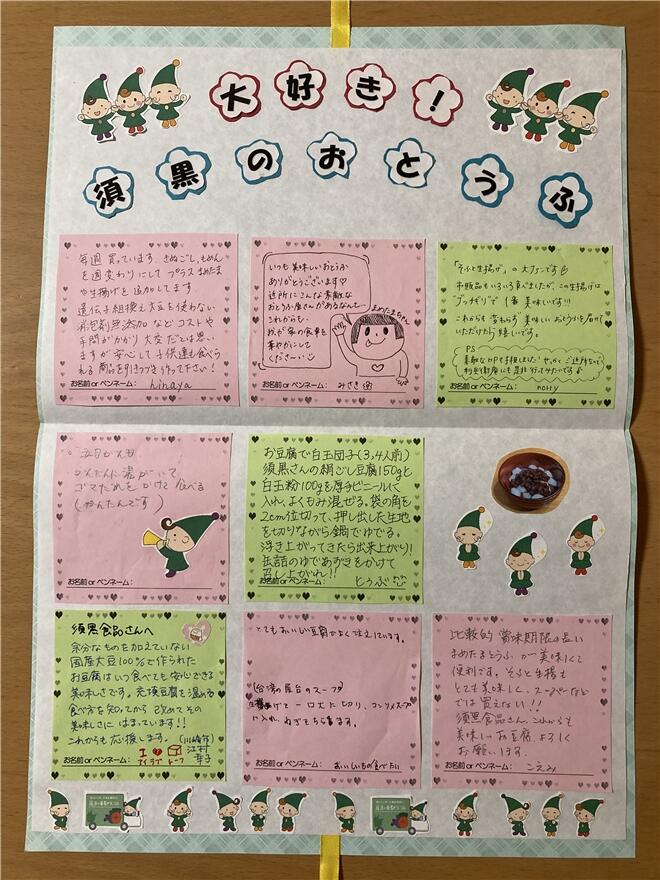 大好き！
須黒のおとうふ
毎週買っています。きぬごし、もめん
を週変わりにして プラス まめたま
や生揚げを追加してます
遺伝子組換え大豆を使わない
消泡剤無添加など コストや
手間がかかり 大変だとは思い
ますが安心して子供達も食べら
れる商品を引きつづき作って下さい！
お名前 or ペンネーム： hinaya
いつも美味しいおとうふ
ありがとうございます♡
近所にこんな素敵な
おとうふ屋さんがあるなんて
これからも、
わが家の食卓を
華やかにして
ください
まめたまちゃん
お名前 or ペンネーム： みさき
「そふと生揚げ」の大ファンです
市販品もいろいろ食べましたが、この生揚げは
"ブッチギリ"で1番美味しいです!!!
これからも変わらず美味しいおとうふを届けて
いただけたら嬉しいです。
PS
素敵なHPも拝見しました
お名前 or ペンネーム： norry
かんたんに湯がいて
ゴマだれを かけて 食べる
(かんたんです)
お名前 or ペンネーム：
お豆腐で白玉団子(3,4人前)
須黒さんの絹ごし豆腐150gと
白玉粉100gを厚手ビニールに
入れ、よくもみ混ぜる。袋の角を
2cm位切って、押し出した生地
を切りながら鍋でゆでる。
浮き上がってきたら出来上がり!
缶詰のゆであずきをかけて
召し上がれ!!
お名前 or ペンネーム： とうふ
須黒食品さんへ
余分なものを加えていない
国産大豆100%で作られた
お豆腐はいつ食べても安心できる
美味しさです。充填豆腐を温める
食べ方を知ってから 改めてその
美味しさに はまっています!!
これからも応援します。(川崎市)
江村
幸子
I
アイ ラブ トーフ
お名前 or ペンネーム：
とてもおいしい豆腐でよく使えています。
(台湾の屋台のスープ)
生揚げて一口大に切り、コンソメスープ
に入れ、ねぎをちらします。
お名前 or ペンネーム： おいしいもの食べたい
比較的 賞味期限の長い
まめたまとうふ が美味しくて
便利です。そふと生揚も
とても美味しく、スーパーなど
では買えない!!
須黒食品さん、これからも
美味しいお豆腐、よろしく
お願いします。
お名前 or ペンネーム： こえみ